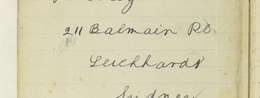 211 Balmain Rd.
Leichhardt
Sydney